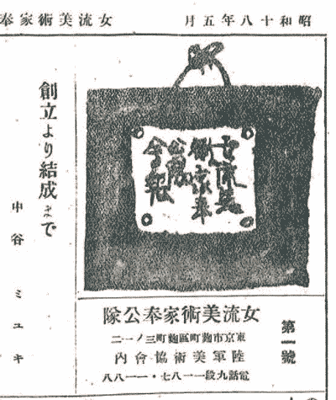 昭和十八年五月
女流美術家奉
女流美
術家奉
公隊
会報
第一號
女流美術家奉公隊
東京市麴町區麴町三ノ一二
陸軍美術協會内
電話九段一一八七・一一八八
創立より結成まで
中谷ミユキ